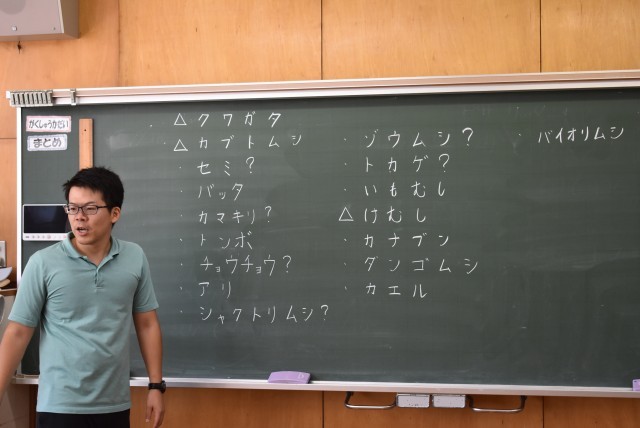 がくしゅうかだい
まとめ
△クワガタ
・△カブトムシ
・セミ?
・バッタ
・カマキリ?
・トンボ
・チョウチョウ?
・アリ
・シャクトリムシ?
・ゾウムシ?
・トカゲ?
・いもむし
△けむし
・カナブン
・ダンゴムシ
・カエル
・バイオリムシ